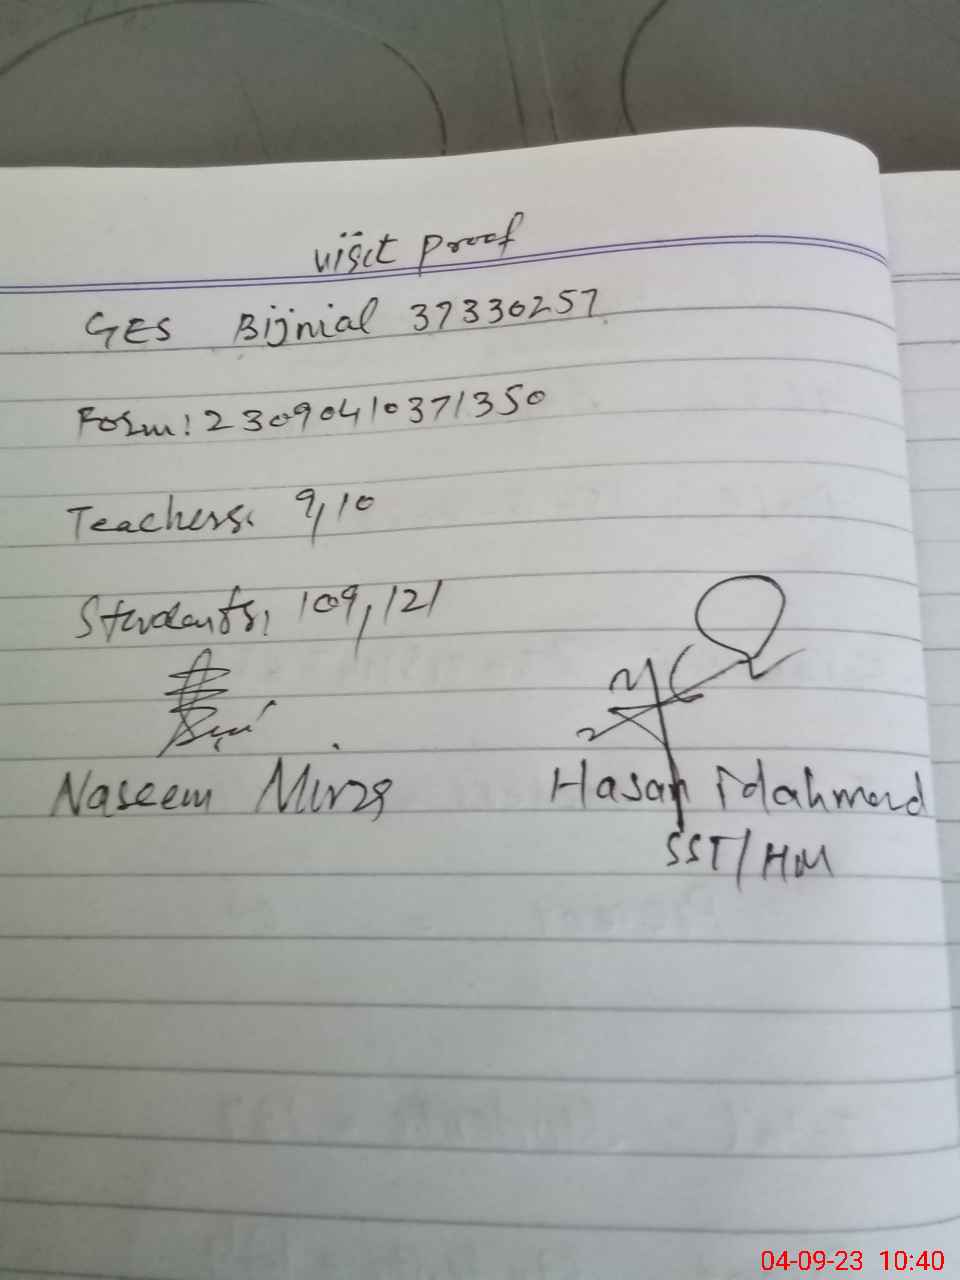 visit proof
GES Bijnial 37330257
Form: 23090410371350
Teachers: 9,10
Students: 109,121
Naseem Mirza
Hasan Mahmood
SST/HM
04-09-23 10:40